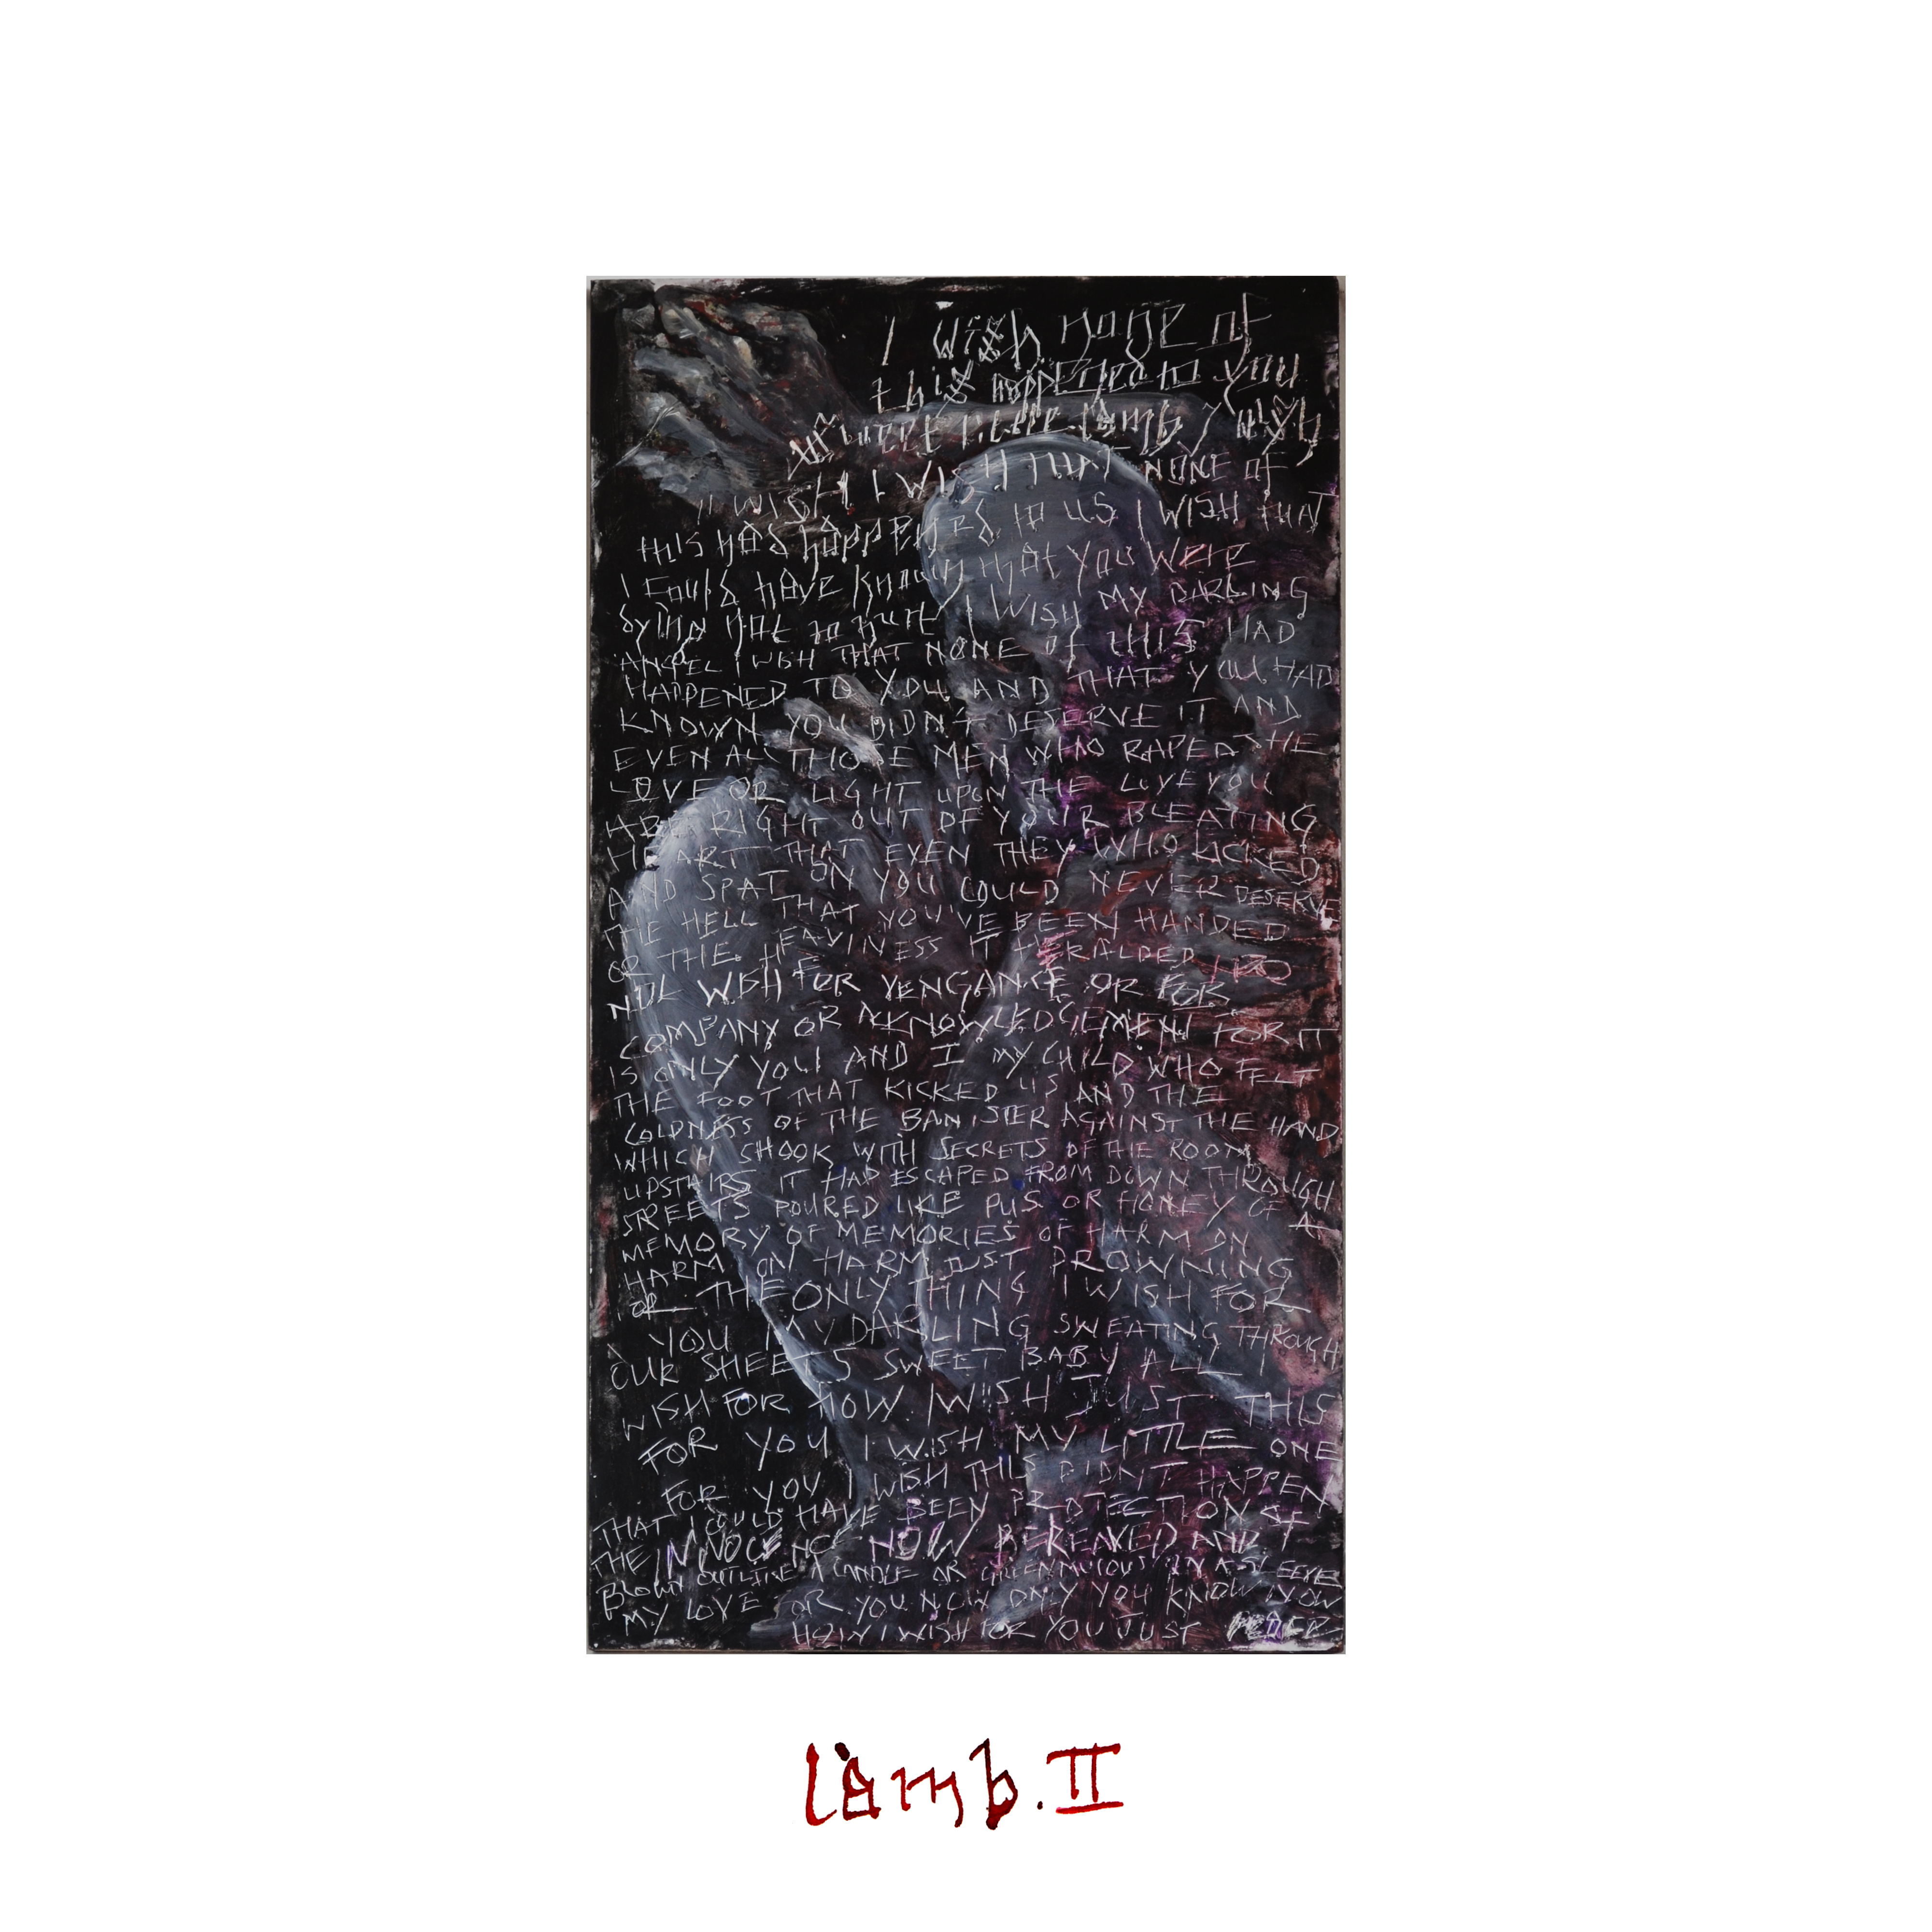 I wish none of
this happened to you
sweet little lamb I wish
I WISH I WISH THAT NONE OF
this had happened to us I WISH THAT
I could have known that you were
dying not to hurt I WISH MY DARLING
ANGEL I WISH THAT NONE OF THIS HAD
HAPPENED TO YOU AND THAT YOU HAD
KNOWN YOU DIDN'T DESERVE IT AND
EVEN ALL THOSE MEN WHO RAPED THE
LOVE OR LIGHT UPON THE LOVE YOU
RIGHT OUT OF YOUR BLEATING
HEART THAT EVEN THEY WHO KICKED
AND SPAT ON YOU COULD NEVER DESERVE
THE HELL THAT YOU'VE BEEN HANDED
OR THE HEAVINESS IT HERALDED I DO
NOT WISH FOR VENGANCE OR FOR
COMPANY OR AKNOWLEDGEMENT FOR IT
IS ONLY YOU AND I MY CHILD WHO FELT
THE FOOT THAT KICKED US AND THE
COLDNESS OF THE BANISTER AGAINST THE HAND
WHICH SHOOK WITH SECRETS OF THE ROOM
UPSTAIRS IT HAD ESCAPED FROM DOWN THROUGH
STREETS POURED LIKE PUS OR HONEY OF A
MEMORY OF MEMORIES OF HARM ON
HARM ON HARM JUST DROWNING
OR THE ONLY THING I WISH FOR
YOU MY DARLING SWEATING THROUGH
OUR SHEETS SWEET BABY ALL I
WISH FOR HOW I WISH JUST THIS
FOR YOU I WISH MY LITTLE ONE
FOR YOU I WISH THIS DIDN'T HAPPEN
THAT I COULD HAVE BEEN PROTECTION OF
THE INNOCENCE NOW BEREAVED AND
BLOWN OUT LIKE A CANDLE OR GREEN MUCOUS IN A SLEEVE
MY LOVE OR YOU NOW ONLY YOU KNOW NOW
HOW I WISH FOR YOU JUST PEACE
lamb. II